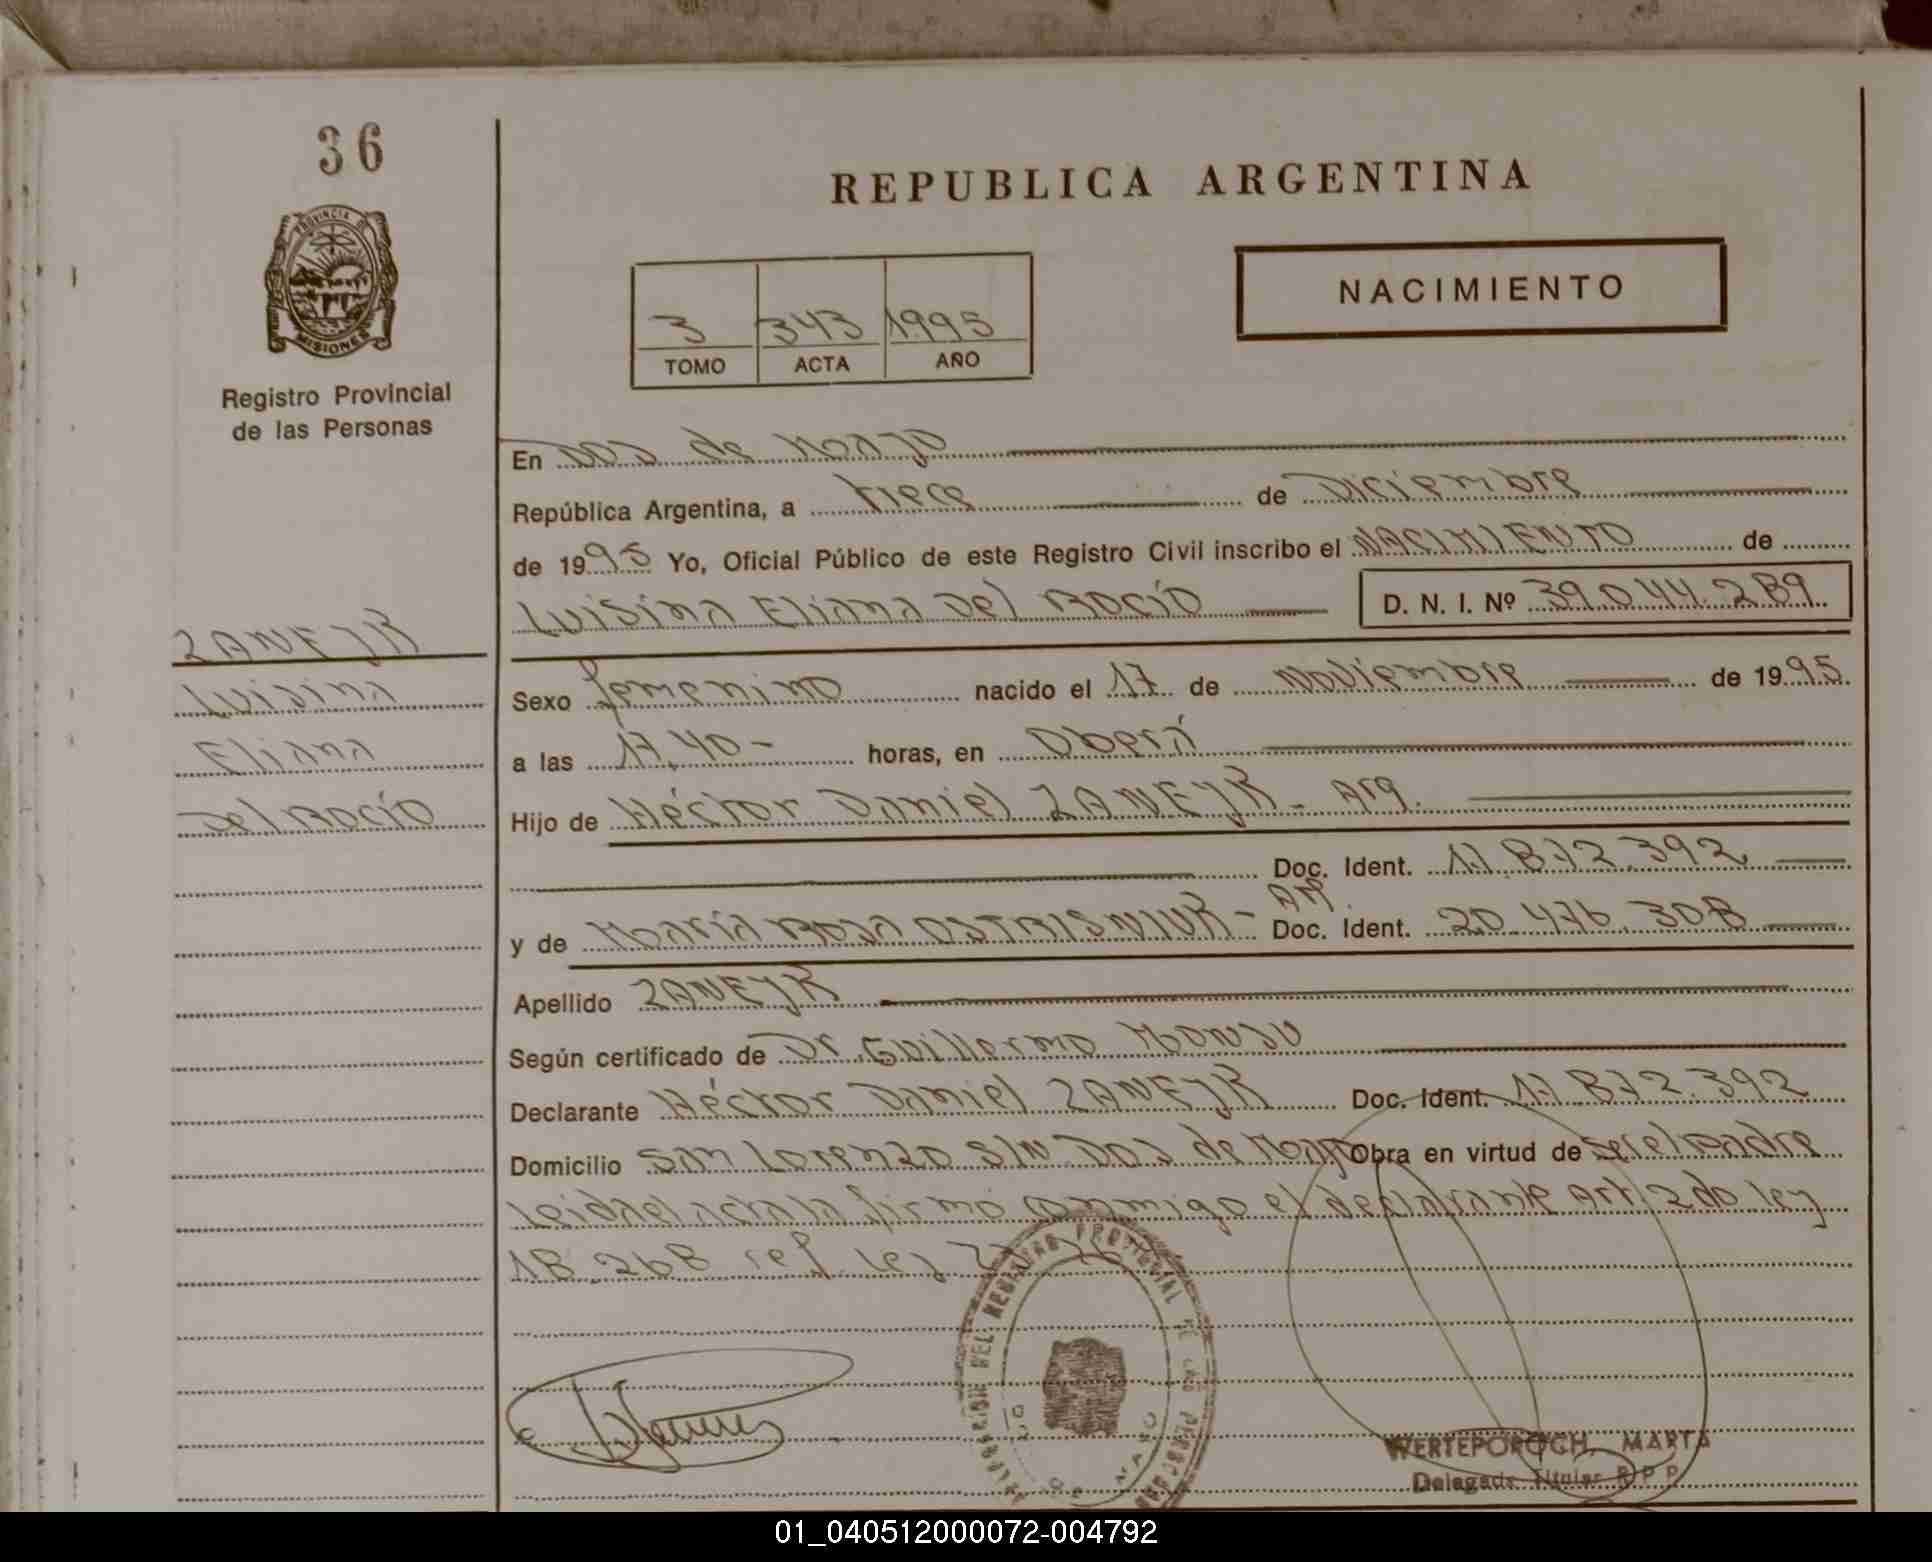 36
PROVINCIA DE
MISIONES
Registro Provincial
de las Personas
REPUBLICA ARGENTINA
3 343 1995
TOMO ACTA AÑO
NACIMIENTO
En Dos de Mayo
República Argentina, a trece de Diciembre
de 1995 Yo, Oficial Público de este Registro Civil inscribo el NACIMIENTO de
Luisina Eliana Del Rocío D. N. I. Nº 39.044.289
ZANEJR
Luisina
Eliana
Del Rocío
Sexo femenino nacido el 17 de noviembre de 1995
a las 17,40- horas, en Oberá
Hijo de Héctor Daniel ZANEJR - Arg.
Doc. Ident. 17.872.392
y de María Rosa OSTRISNIUK - Arg. Doc. Ident. 20.476.308
Apellido ZANEJR
Según certificado de Dr. Guillermo
Declarante Héctor Daniel ZANEJR Doc. Ident. 17.872.392
Domicilio San Lorenzo S/N Dos de Mayo Obra en virtud de ser el Padre
Leida el acta la firmó conmigo el declarante Art. 2do ley
18.268 ref. ley
DEL REGISTRO PROVINCIAL DE LAS PERSONAS
DOS DE MAYO
WERTEPOROCH, MARTA
Delegada Titular R P P
01_040512000072-004792